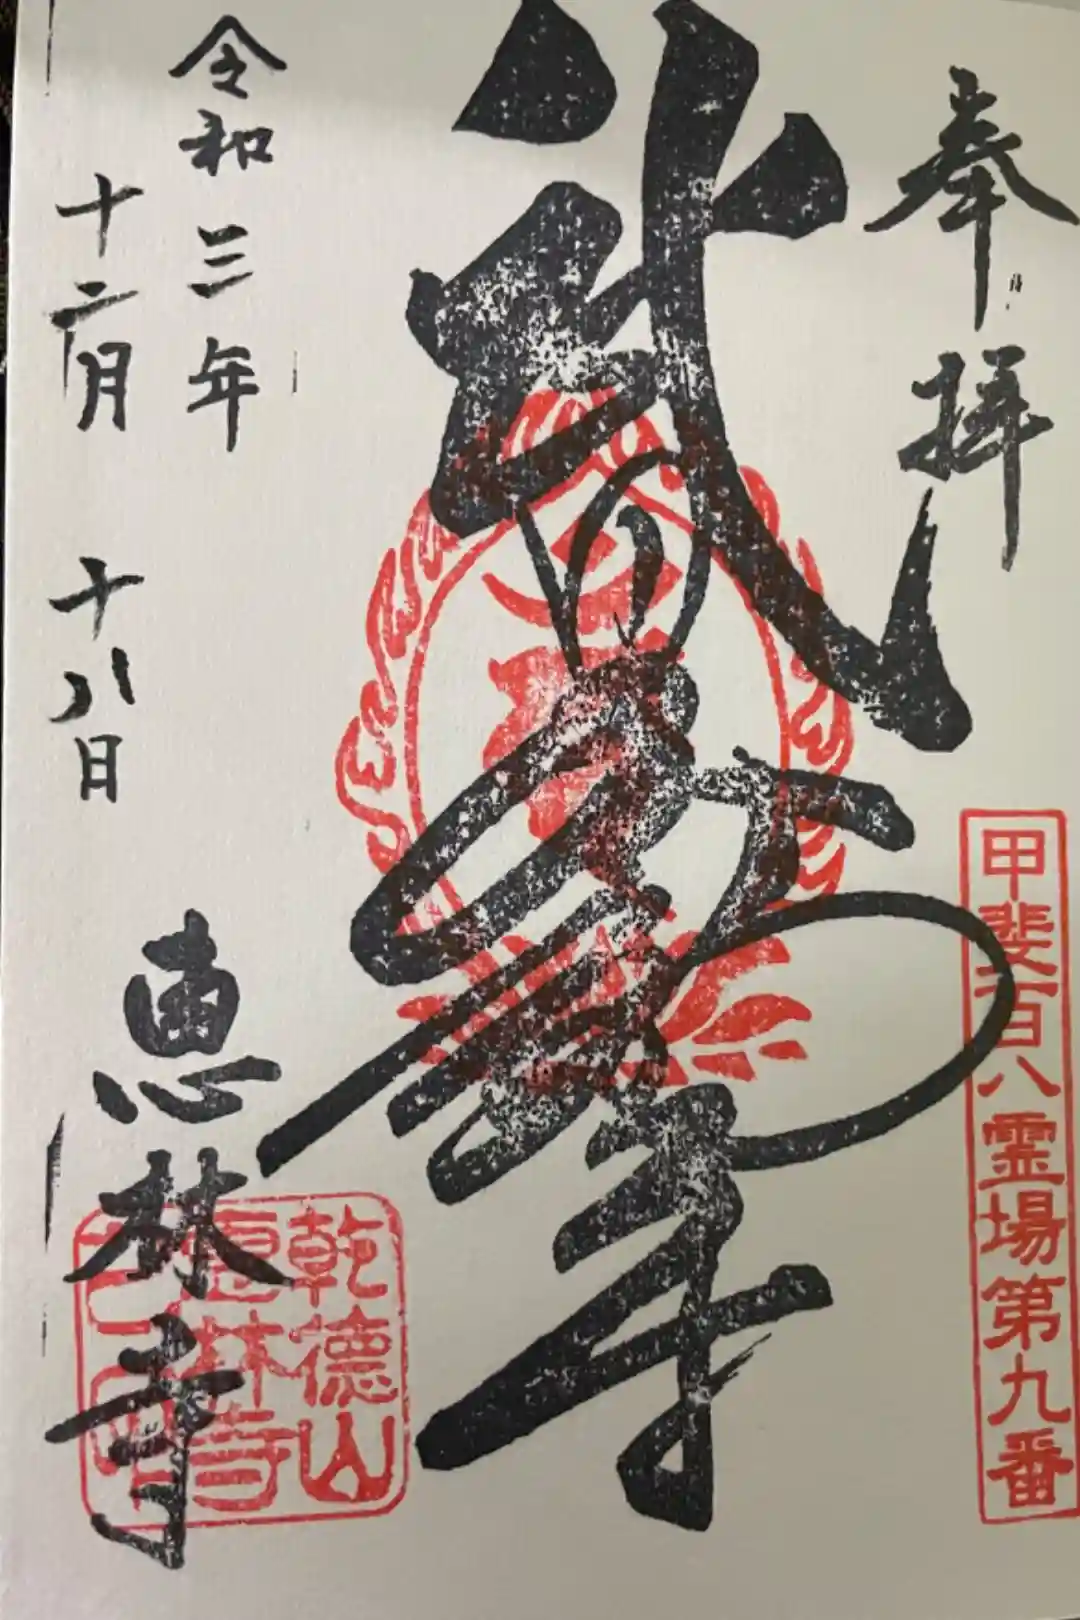 奉拝
甲斐百八霊場第九番
武
令和三年
十二月十八日
恵林寺
乾徳山
恵林寺